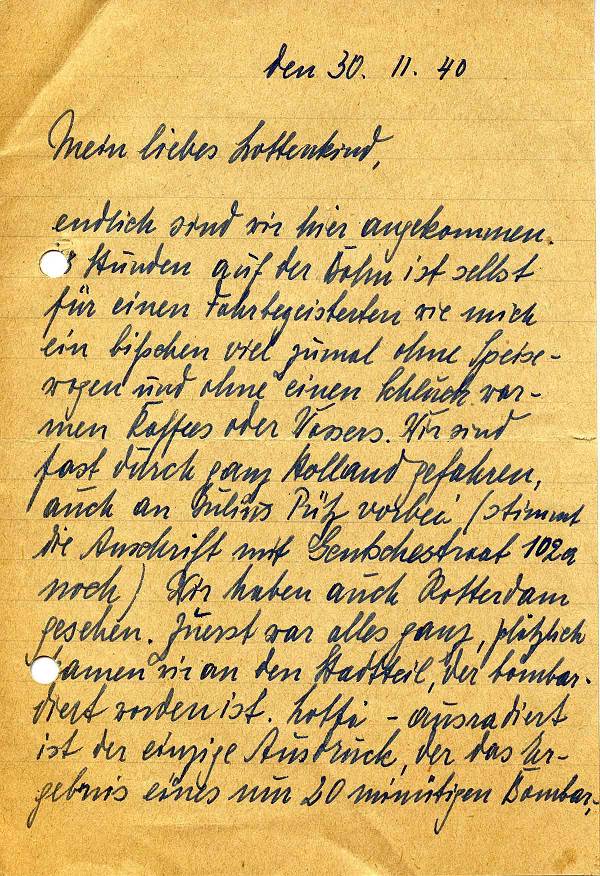 den 30. 11. 40
Mein liebes Lottenkind,
endlich sind wir hier angekommen.
Stunden auf der Bahn ist selbst
für einen Fahrbegeisterten wie mich
ein bißchen viel zumal ohne Speise-
wagen und ohne einen Schluck war-
men Kaffees oder Wassers. Wir sind
fast durch ganz Holland gefahren,
auch an Julius Pütz vorbei (stimmt
die Anschrift mit Gentschestraat 102a
noch) Wir haben auch Rotterdam
gesehen. Zuerst war alles ganz, plötzlich
kamen wir an den Stadtteil, der bombar-
diert worden ist. Lotti - ausradiert
ist der einzige Ausdruck, der das Er-
gebnis eines nur 20 minütigen Bombar-